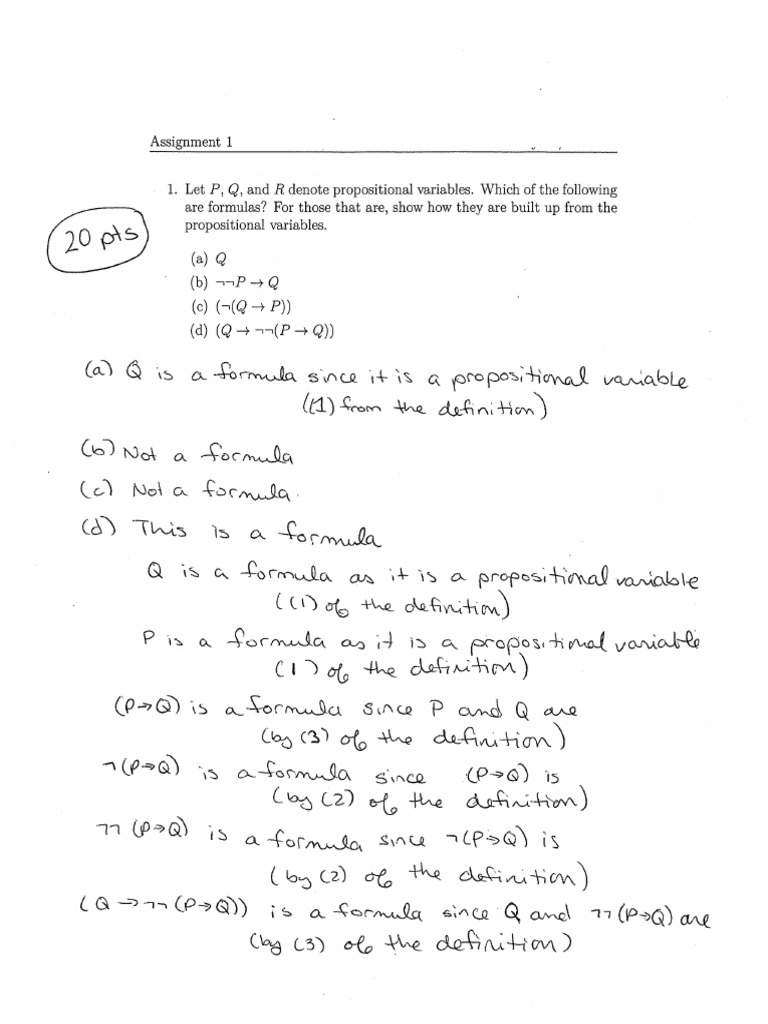 Assignment 1
1. Let P, Q, and R denote propositional variables. Which of the following
are formulas? For those that are, show how they are built up from the
propositional variables.
20 pts
(a) Q
(b) ¬¬P → Q
(c) (¬(Q → P))
(d) (Q → ¬¬(P → Q))
(a) Q is a formula since it is a propositional variable
((1) from the definition)
(b) Not a formula
(c) Not a formula.
(d) This is a formula
Q is a formula as it is a propositional variable
((1) of the definition)
P is a formula as it is a propositional variable
(1) of the definition)
(P→Q) is a formula since P and Q are
(by (3) of the definition)
¬(P→Q) is a formula since (P→Q) is
(by (2) of the definition)
¬¬(P→Q) is a formula since ¬(P→Q) is
(by (2) of the definition)
(Q→¬¬(P→Q)) is a formula since Q and ¬¬(P→Q) are
(by (3) of the definition)